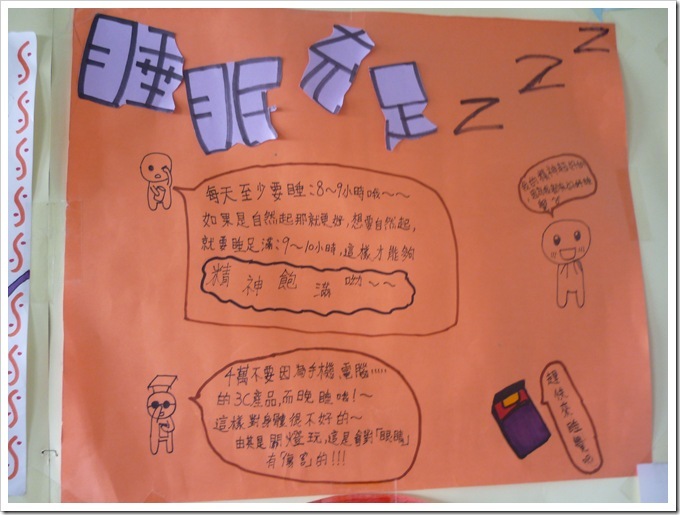 睡眠充足
Z Z Z Z
每天至少要睡:8~9小時哦~~
如果是自然起那就更好,想要自然起,
就要睡足滿:9~10小時,這樣才能夠
精神飽滿呦~~
千萬不要因為手機、電腦……
的3C產品,而晚睡哦!~
這樣對身體很不好的~
由其是關燈玩,這是會對「眼睛」
有「傷害」的!!!
趕快來睡覺吧